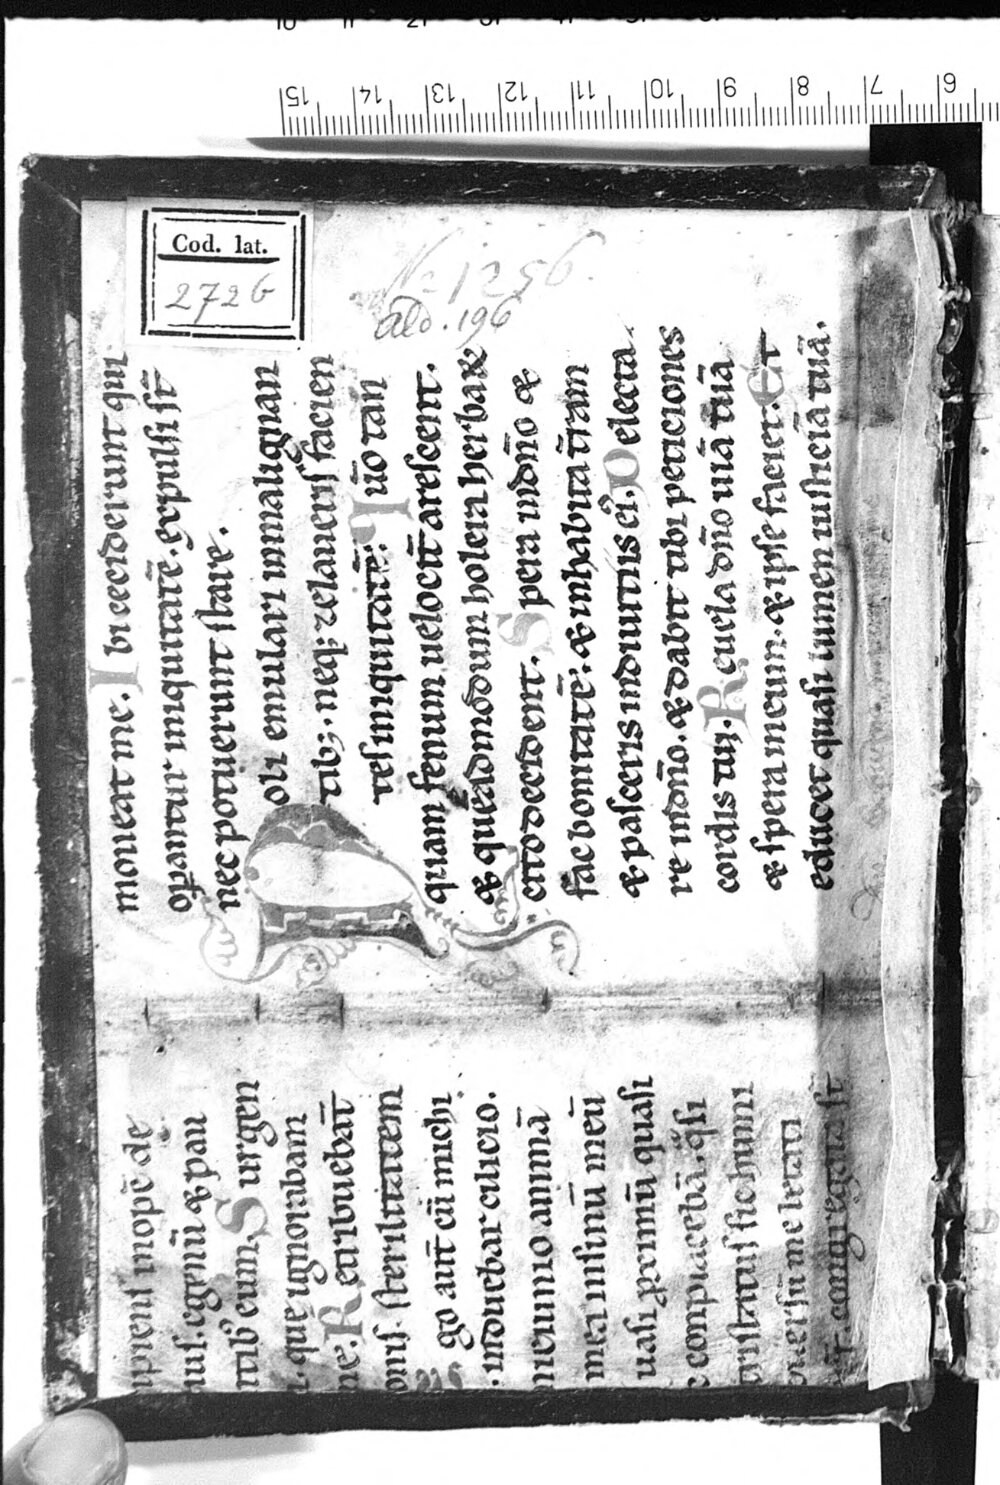 15 14 13 12 11 10 9 8 7 6
Cod. lat.
2726
N. 1256.
ald. 196
moueat me. Ibi ceciderunt qui
opantur iniquitatē. expulsi st̄
nec potuerunt stare.
Noli emulari in malignan
tib; neq; zelaueris facien
tes iniquitatē. Tuō tan
quam fenum uelocit̄ arescent.
& quēadmodum holera herbarꝫ
cito decident. Spera in dn̄o &
fac bonitatē. & inhabita t̄ram
& pasceris in diuitiis ei. Delecta
re in dn̄o. & dabit tibi peticiones
cordis tui. Reuela dn̄o uiā tuā
& spera in eum. & ipse faciet. Et
educet quasi lumen iusticiā tuā.
ipiens inopē de
ius. egenū & pau
ntib' eum. Surgen
quē ignorabam
me. Retribuebāt
onis. sterilitatem
go aut̄ cū michi
induebar cilicio.
ieiunio animā
mea in sinū meū
uasi proximū quasi
conplacebā. q̄si
tristatus sic humi
uersū me letati
t. congregata st̄